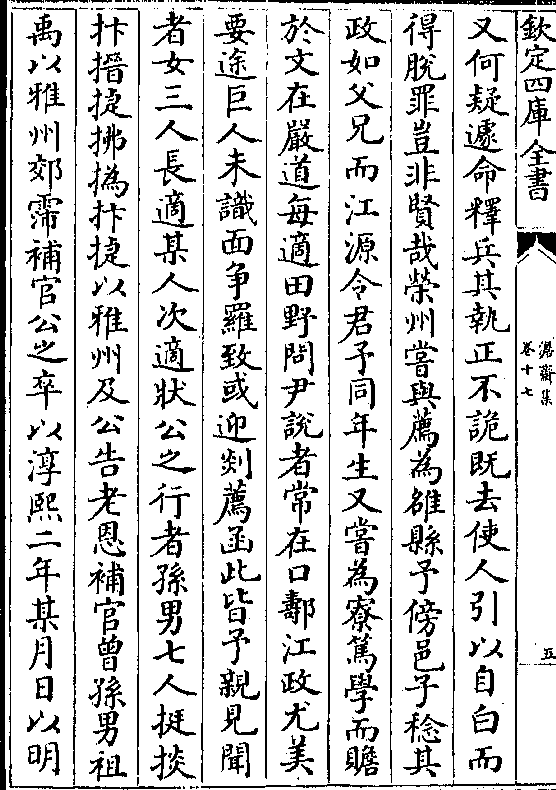 欽定四庫全書
澹齋集
卷十七
五
又何疑遽命釋兵其執正不詭既去使人引以自白而
得脫罪豈非賢哉榮州嘗與薦為雒縣予傍邑子稔其
政如父兄而江源令君予同年生又嘗為寮篤學而贍
於文在嚴道每適田野問尹說者常在口鄰江政尤美
要途巨人未識面争羅致或迎剡薦函此皆予親見聞
者女三人長適某人次適狀公之行者孫男七人挺掞
抃搢捷拂撝抃捷以雅州及公告老恩補官曾孫男祖
禹以雅州郊霈補官公之卒以淳熙二年某月日以明